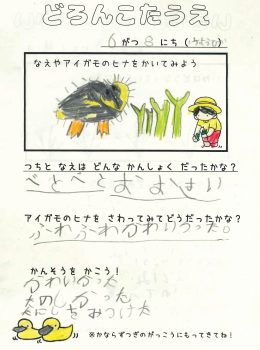 どろんこたうえ
6がつ8にち(
なえやアイガモのヒナをかいてみよう
つちと なえは どんな かんしょく だったかな?
べとべと
アイガモのヒナを さわってみてどうだったかな?
ふわふわかわいかった。
かんそうを かこう!
かわいかった
たのしかった
にじをみつけた
※かならずつぎのがっこうにもってきてね!